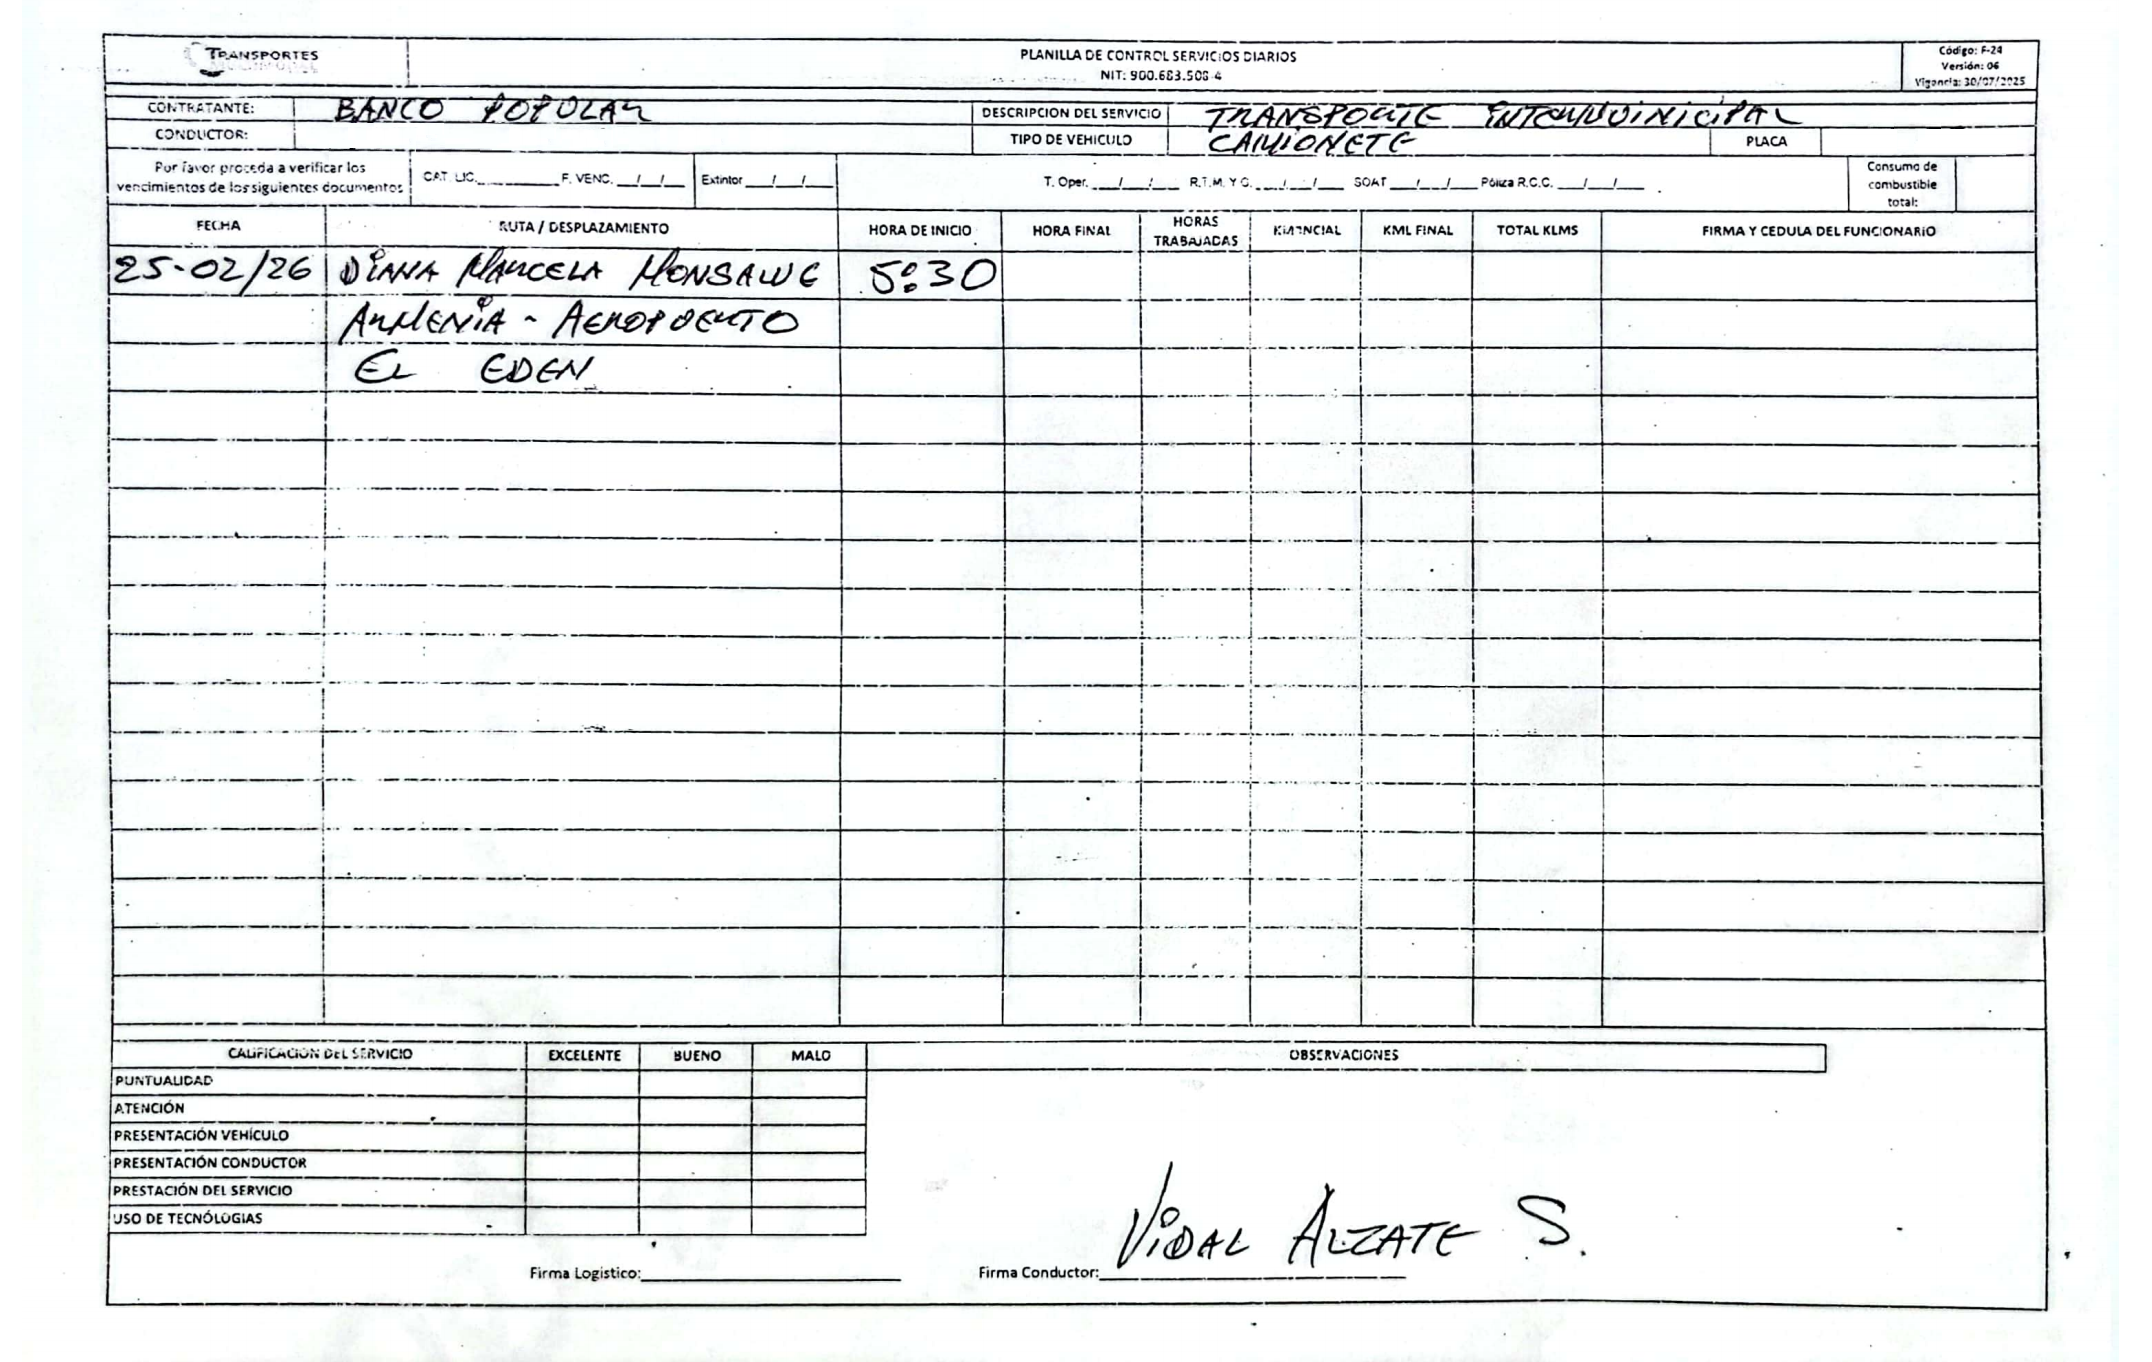 TRANSPORTES
PLANILLA DE CONTROL SERVICIOS DIARIOS
NIT: 900.683.508-4
Código: F-24
Versión: 06
Vigencia: 30/07/2025
CONTRATANTE: BANCO POPULAR
DESCRIPCION DEL SERVICIO TRANSPORTE INTERMUINICIPAL
CONDUCTOR:
TIPO DE VEHICULO CAMIONETE PLACA
Por favor proceda a verificar los
vencimientos de los siguientes documentos
CAT. LIC.________ F. VENC. __/__/__ Extintor __/__/__
T. Oper. __/__/__ R.T.M. Y G. __/__/__ SOAT __/__/__ Póliza R.C.C. __/__/__
Consumo de
combustible
total:
FECHA RUTA / DESPLAZAMIENTO HORA DE INICIO HORA FINAL HORAS TRABAJADAS KM INCIAL KML FINAL TOTAL KLMS FIRMA Y CEDULA DEL FUNCIONARIO
25-02/26 DIANA MARCELA MONSALVE 5:30
ARMENIA - AEROPUERTO
EL EDEN
CALIFICACIÓN DEL SERVICIO EXCELENTE BUENO MALO OBSERVACIONES
PUNTUALIDAD
ATENCIÓN
PRESENTACIÓN VEHÍCULO
PRESENTACIÓN CONDUCTOR
PRESTACIÓN DEL SERVICIO
USO DE TECNÓLOGIAS
VIDAL ALZATE S.
Firma Logistico:________ Firma Conductor:________